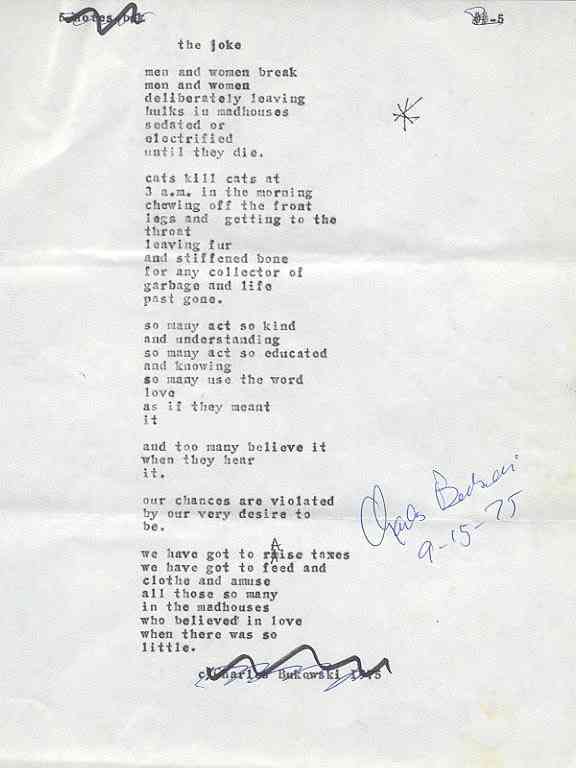 -5
the joke
men and women break
men and women
deliberately leaving
hulks in madhouses
sedated or
electrified
until they die.
cats kill cats at
3 a.m. in the morning
chewing off the front
legs and getting to the
throat
leaving fur
and stiffened bone
for any collector of
garbage and life
past gone.
so many act so kind
and understanding
so many act so educated
and knowing
so many use the word
love
as if they meant
it
and too many believe it
when they hear
it.
our chances are violated
by our very desire to
be.
Charles Bukowski
9-15-75
we have got to raise taxes
we have got to feed and
clothe and amuse
all those so many
in the madhouses
who believed in love
when there was so
little.
Charles Bukowski 1975